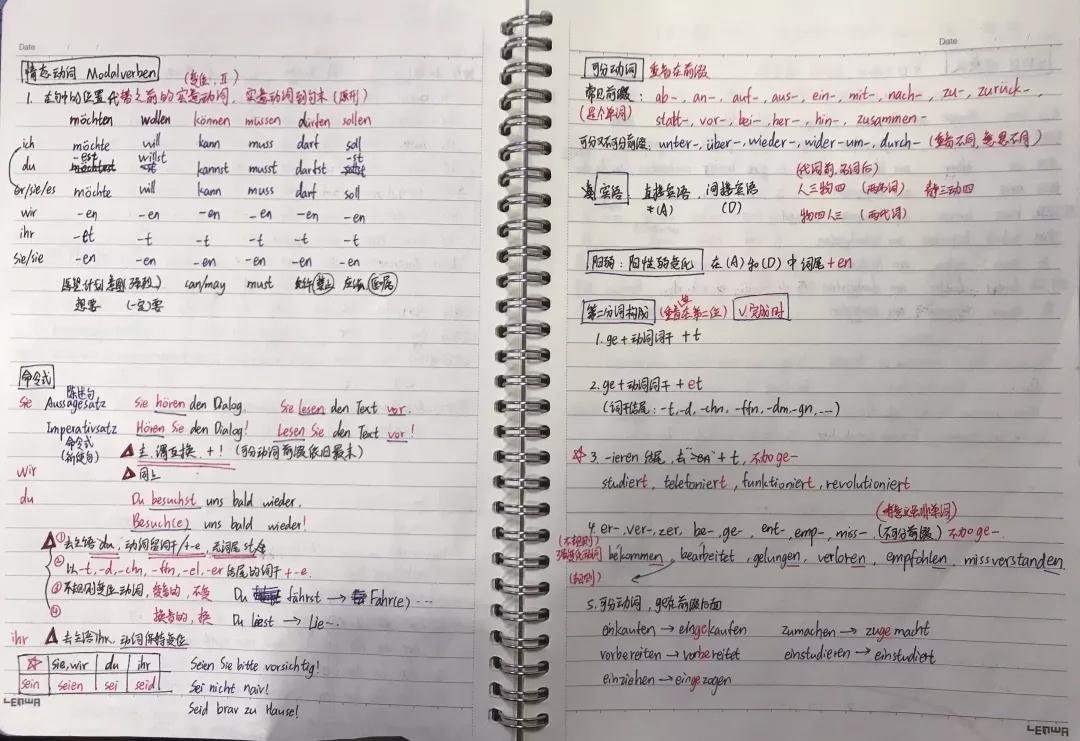 Date
情态动词 Modalverben (变位, Ⅱ)
1. 在句中的位置代替之前的实意动词, 实意动词到句末 (原形)
möchten wollen können müssen dürfen sollen
ich möchte will kann muss darf soll
du -est willst kannst musst darfst -st
er/sie/es möchte will kann muss darf soll
wir -en -en -en -en -en -en
ihr -et -t -t -t -t -t
sie/sie -en -en -en -en -en -en
强烈) can/may must 允许(禁止) 应该
想要 (一定)要
命令式
陈述句
Sie Aussagesatz Sie hören den Dialog. Sie lesen den Text vor.
Imperativsatz Hören Sie den Dialog! Lesen Sie den Text vor!
命令式
(祈使句) △ 主、谓互换, +! (可分动词前缀依旧最末)
wir △ 同上
du Du besuchst uns bald wieder.
Besuch(e) uns bald wieder!
△ ① 去主语du, 动词留词干/+-e, 无词尾st
② 以-t,-d,-chn,-ffn,-el,-er 结尾的词干+-e.
③ 不规则变位动词, 变音的, 不变 Du fährst → Fahr(e) …
④ 换音的, 换 Du liest → Lie-.
ihr △ 去主语ihr, 动词保持变位
☆ sie,wir du ihr
sein seien sei seid
Seien Sie bitte vorsichtig!
Sei nicht naiv!
Seid brav zu Hause!
LENWA
Date
可分动词 重音在前缀
常见前缀: ab-, an-, auf-, aus-, ein-, mit-, nach-, zu-, zurück-
(是个单词) statt-, vor-, bei-, her-, hin-, zusammen-
可分又不可分前缀: unter-, über-, wieder-, wider-um-, durch- (重音不同, 意思不同)
(代词前, 名词后)
宾语 直接宾语, 间接宾语 人三物四 (两名词) 静三动四
*(A) (D) 物四人三 (两代词)
阳弱: 阳性弱变化 在(A)和(D)中词尾+en
第二分词构成 (重音在第二位) √完成时
1. ge+动词词干 +t
2. ge+动词词干 +et
(词干结尾: -t,-d,-chn,-ffn,-dm,-gn,...)
☆ 3. -ieren 结尾, 去"-en" +t, 不加ge-
studiert, telefoniert, funktioniert, revolutioniert
4. er-, ver-, zer, be-, ge-, ent-, emp-, miss- (不可分前缀) 不加ge-.
(不规则)
bekommen, bearbeitet, gelungen, verloren, empfohlen, missverstanden
(规则)
5. 可分动词, ge在前缀后面
einkaufen → eingekaufen zumachen → zugemacht
vorbereiten → vorbereitet einstudieren → einstudiert
einziehen → eingezogen
LENWA